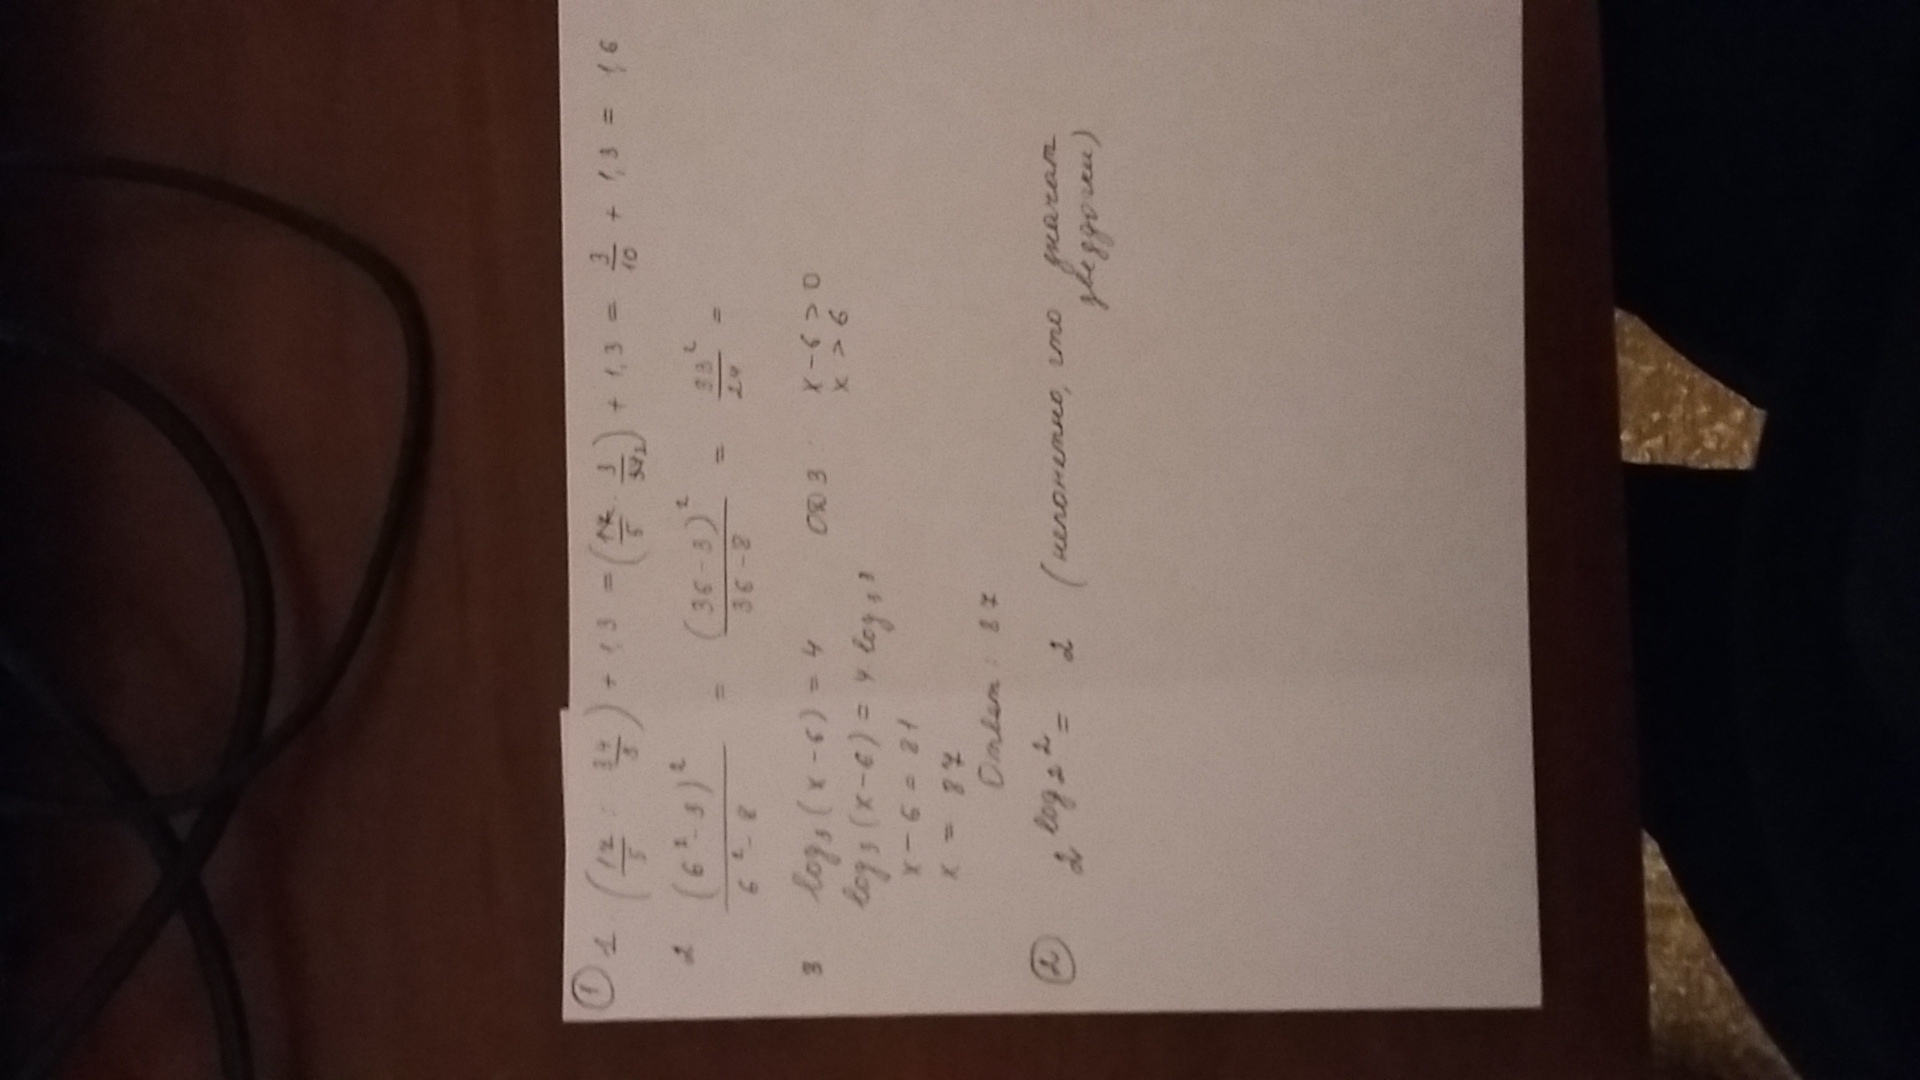 ① 1 (17/5 : 34/3) + 1,3 = (17/5 · 3/34₂) + 1,3 = 3/10 + 1,3 = 1,6
2 (6² - 3)² / 6² - 8 = (36 - 3)² / 36 - 8 = 33² / 24 =
3 log₃(x - 6) = 4 ОДЗ : x - 6 > 0
log₃(x - 6) = 4 log₃3 x > 6
x - 6 = 81
x = 87
Ответ : 87
② 2 log₂2 = 2 (непонятно, что значат
звездочки)